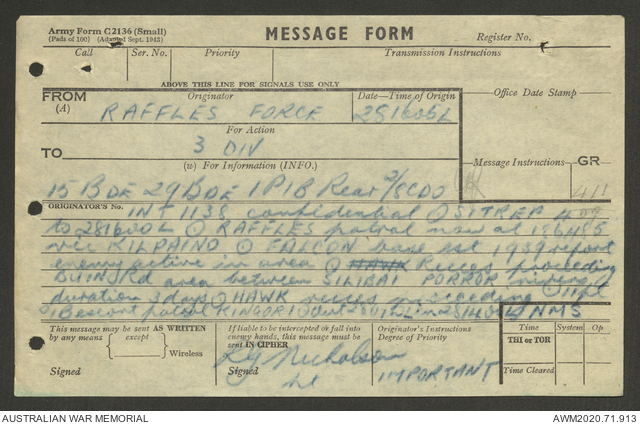 Army Form C2136 (Small)
(Pads of 100) (Adapted Sept. 1943)
MESSAGE FORM
Register No.
Call
Ser. No.
Priority
Transmission Instructions
ABOVE THIS LINE FOR SIGNALS USE ONLY
FROM
(A)
Originator
RAFFLES FORCE
Date—Time of Origin
281605L
Office Date Stamp
For Action
TO
3 DIV
(w) For Information (INFO.)
Message Instructions
GR
15 BDE 29 BDE 1PIB Rear 2/8CDO
411
ORIGINATOR'S No.
INT 1138 confidential O SITREP
to 281600L O RAFFLES patrol now at 186485
KILPAINO O FALCON base est 1939 report
enemy active in area O HAWK Recces proceeding
BUIN Rd area between SILIBAI PORROR rivers
duration 3 days O HAWK recces proceeding
escort patrol
NMS
This message may be sent AS WRITTEN
by any means except
Wireless
Signed
If liable to be intercepted or fall into
enemy hands, this message must be
sent IN CIPHER
Signed
Nicholson
Lt
Originator's Instructions
Degree of Priority
IMPORTANT
Time
System
Op
THI or TOR
Time Cleared
AUSTRALIAN WAR MEMORIAL
AWM2020.71.913